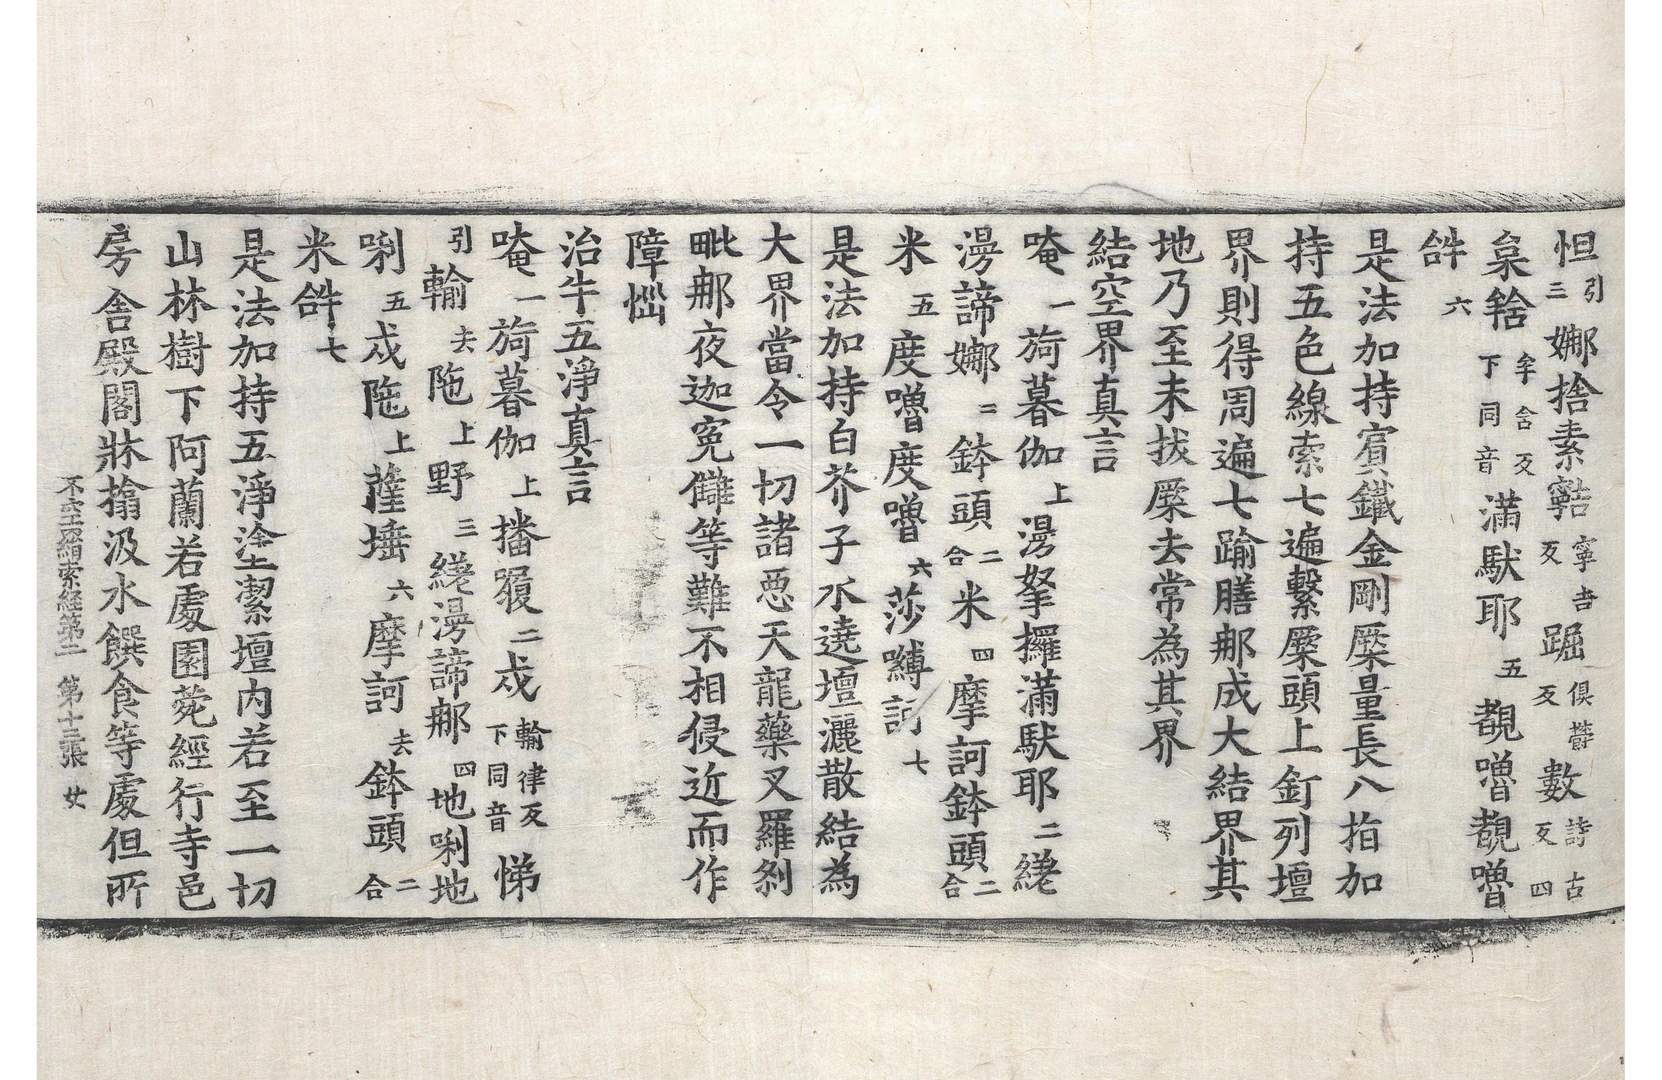 怛引三娜捨素𡫸寧吉反踞俱欝反數詩古反四
㒱㹗牟含反下同音滿馱耶五覩嚕覩嚕
𤙖六
是法加持賔鐵金剛橜量長八指加
持五色線索七遍繫橜頭上釘列壇
界則得周遍七踰膳那成大結界其
地乃至未拔橜去常為其界
結空界真言
唵一旖暮伽上漫拏攞滿馱耶二䌈
漫諦娜二鉢頭二合米四摩訶鉢頭二合
米五度嚕度嚕六莎嚩訶七
是法加持白芥子水遶壇灑散結為
大界當令一切諸惡天龍藥叉羅剎
毗那夜迦寃讎等難不相侵近而作
障惱
治牛五淨真言
唵一旖暮伽上播履二戍輪律反下同音悌
引輸去陁上野三䌈漫諦那四地唎地
唎五戍陁上薩埵六摩訶去鉢頭二合
米𤙖七
是法加持五淨塗潔壇内若至一切
山林樹下阿蘭若處園菀經行寺邑
房舍殿閣牀榻汲水饌食等處但所
不空羂索經第二 第十三張 女